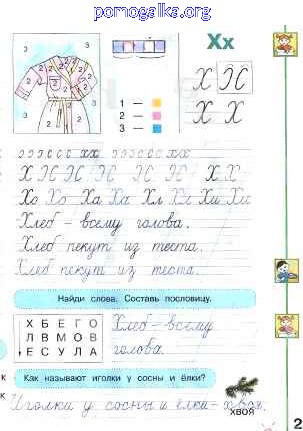 pomogalka.org
Хх
3 3
2 2 2 2
3 3
1 —
2 —
3 —
Х Х
Х Х
Х Х Х Х Х Х Х Х
Хо Хо Ха Ха Хл Хл Хи Хи
Хлеб – всему голова.
Хлеб пекут из теста.
Хлеб пекут из теста.
Найди слова. Составь пословицу.
Х Б Е Г О
Л В М О В
Е С У Л А
Хлеб – всему
голова.
Как называют иголки у сосны и ёлки?
Иголки у сосны и ёлки – хвоя.
ХВОЯ
2